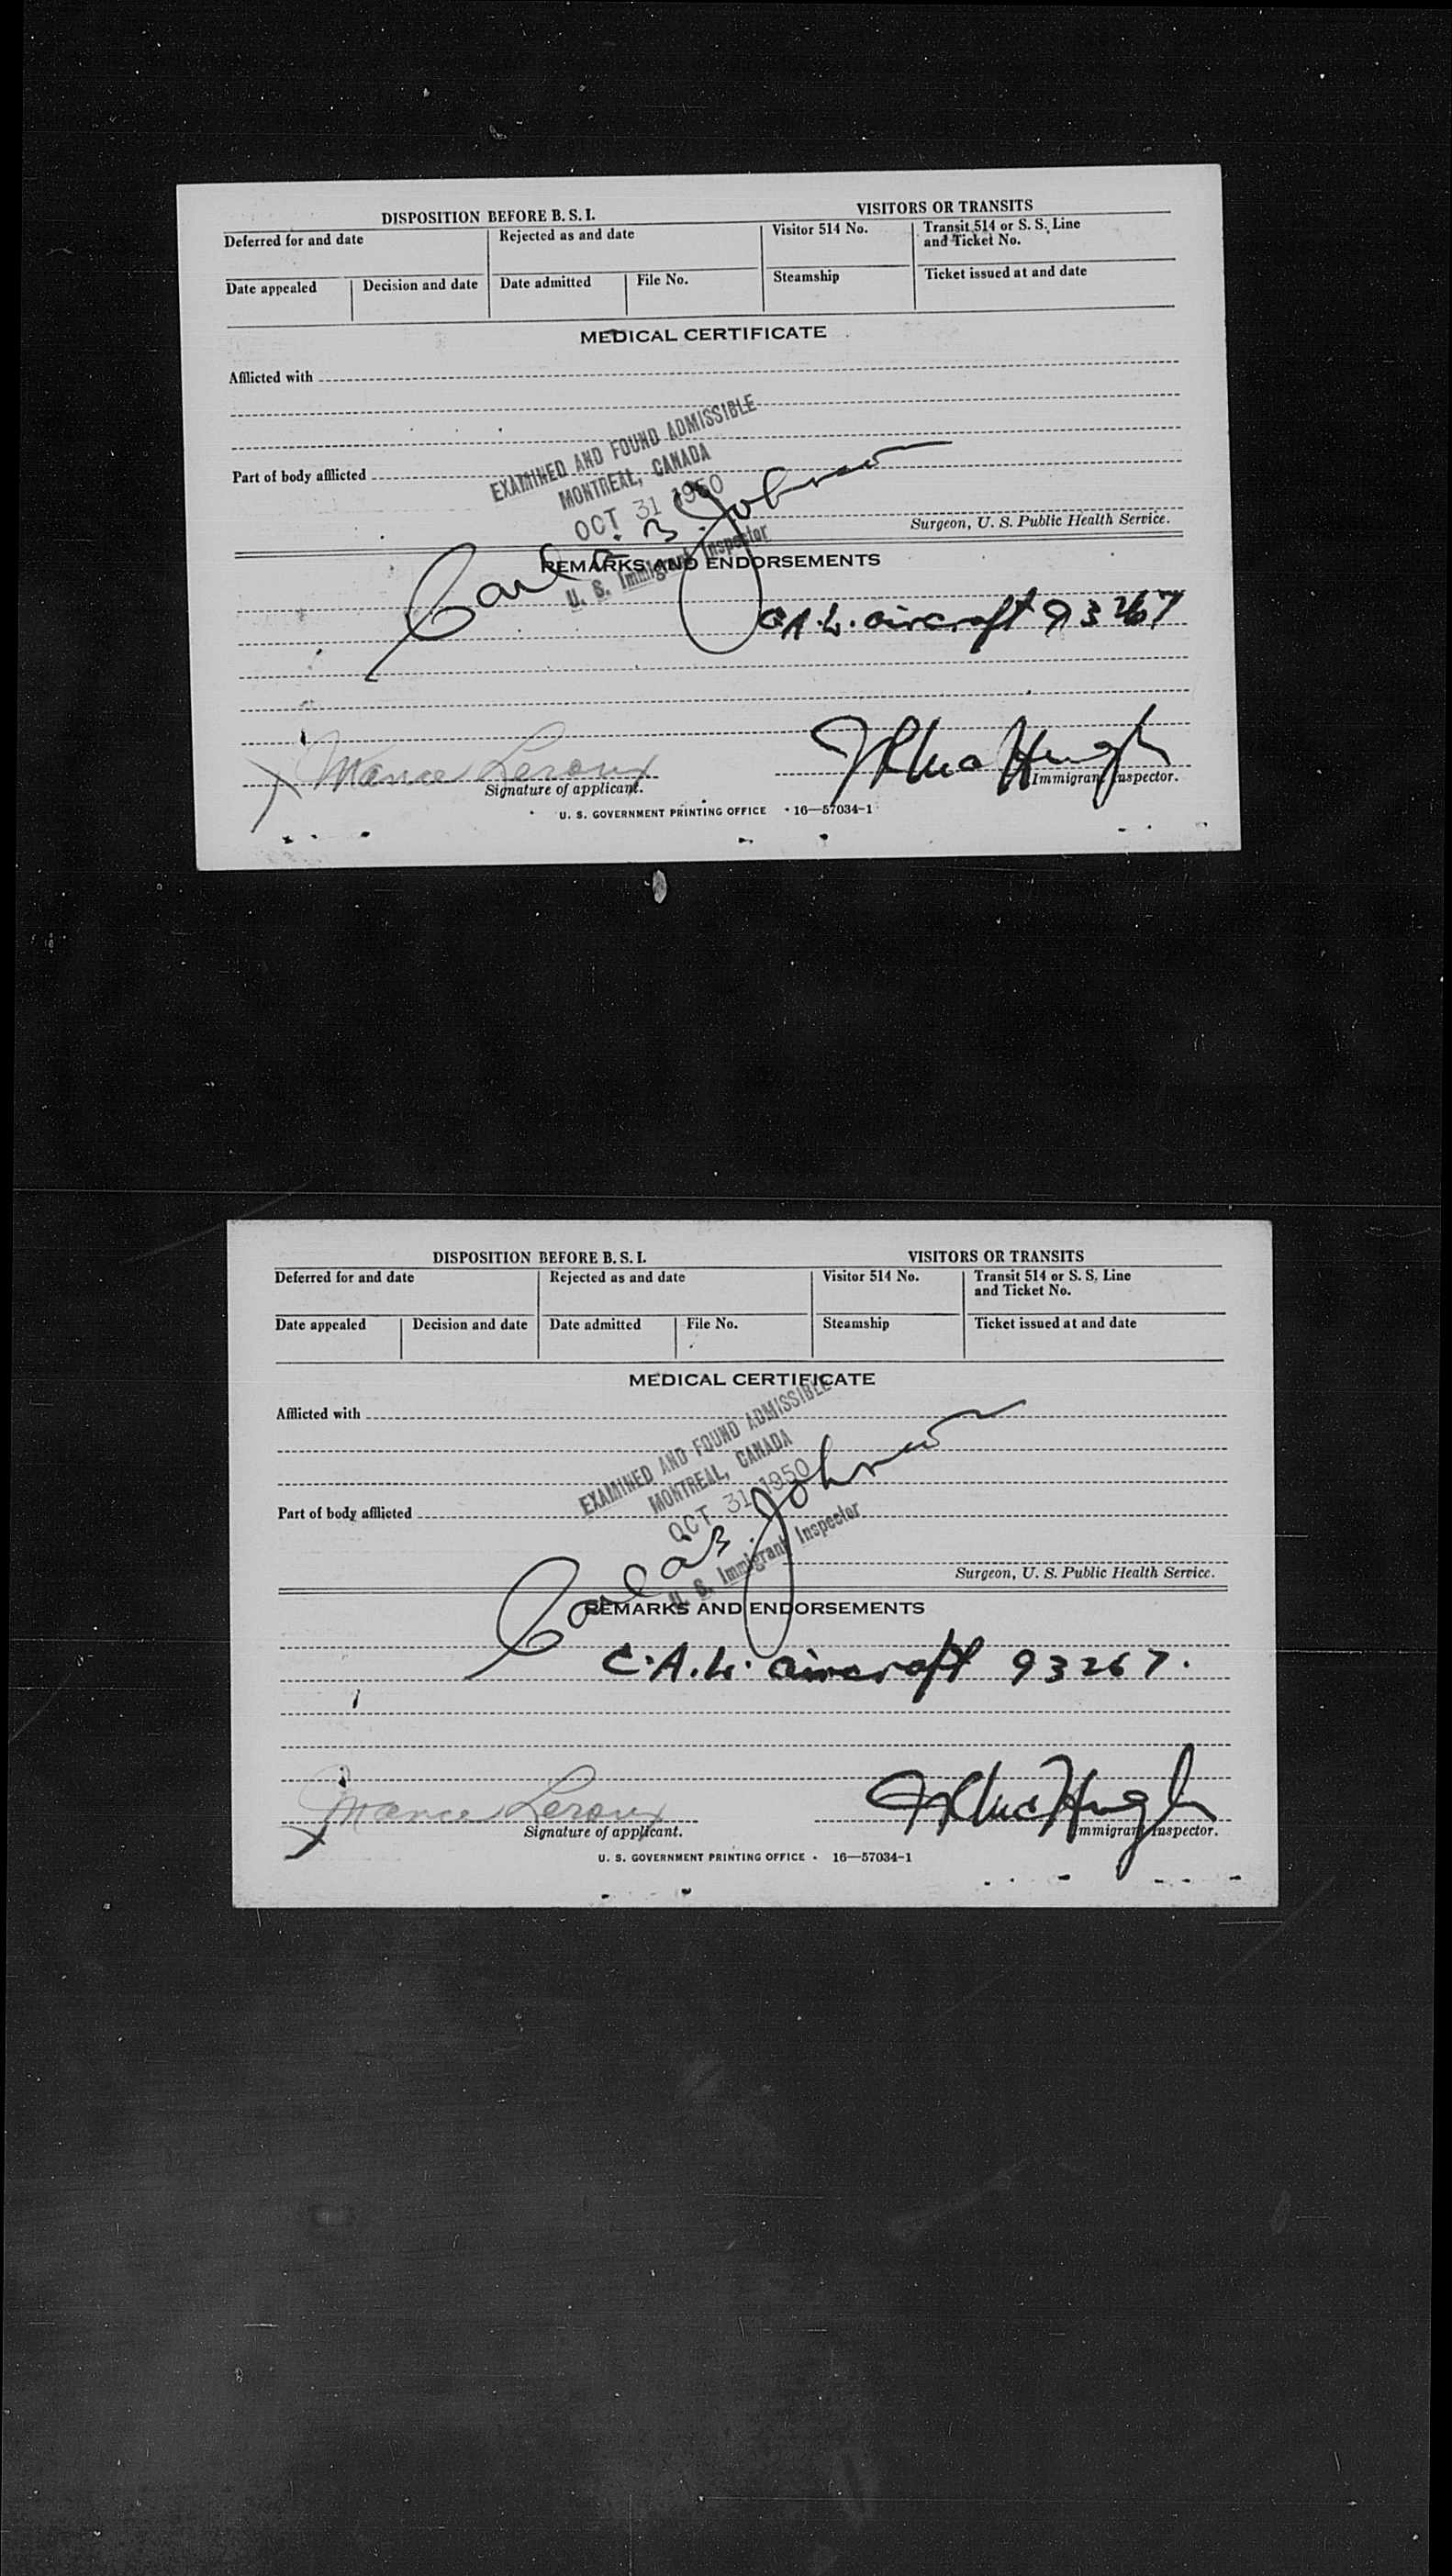 DISPOSITION BEFORE B. S. I.
VISITORS OR TRANSITS
Deferred for and date
Rejected as and date
Visitor 514 No.
Transit 514 or S. S. Line
and Ticket No.
Date appealed
Decision and date
Date admitted
File No.
Steamship
Ticket issued at and date
MEDICAL CERTIFICATE
Afflicted with
EXAMINED AND FOUND ADMISSIBLE
MONTREAL, CANADA
OCT 31 1950
U. S. Immigrant Inspector
Part of body afflicted
Carl B. Johnson
Surgeon, U. S. Public Health Service.
REMARKS AND ENDORSEMENTS
C.A.L. aircraft 93267
Leroux
Signature of applicant.
Immigrant Inspector.
U. S. GOVERNMENT PRINTING OFFICE 16—57034-1
DISPOSITION BEFORE B. S. I.
VISITORS OR TRANSITS
Deferred for and date
Rejected as and date
Visitor 514 No.
Transit 514 or S. S. Line
and Ticket No.
Date appealed
Decision and date
Date admitted
File No.
Steamship
Ticket issued at and date
MEDICAL CERTIFICATE
Afflicted with
EXAMINED AND FOUND ADMISSIBLE
MONTREAL, CANADA
OCT 31 1950
U. S. Immigrant Inspector
Part of body afflicted
Carl B. Johnson
Surgeon, U. S. Public Health Service.
REMARKS AND ENDORSEMENTS
C.A.L. aircraft 93267.
Leroux
Signature of applicant.
Immigrant Inspector.
U. S. GOVERNMENT PRINTING OFFICE 16—57034-1